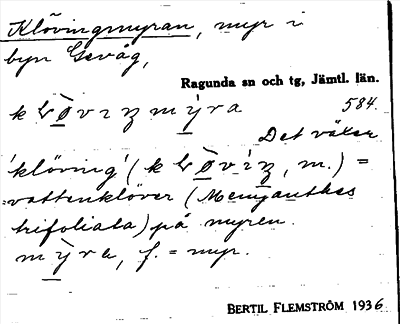 Klövingmyran, myr i
byn Gevåg,
Ragunda sn och tg, Jämtl. län.
584.
Det växer
'klövning' (
, m.) =
vattenklöver (Menyanthes
trifoliata) på myren.
, f. = myr.
BERTIL FLEMSTRÖM 1936